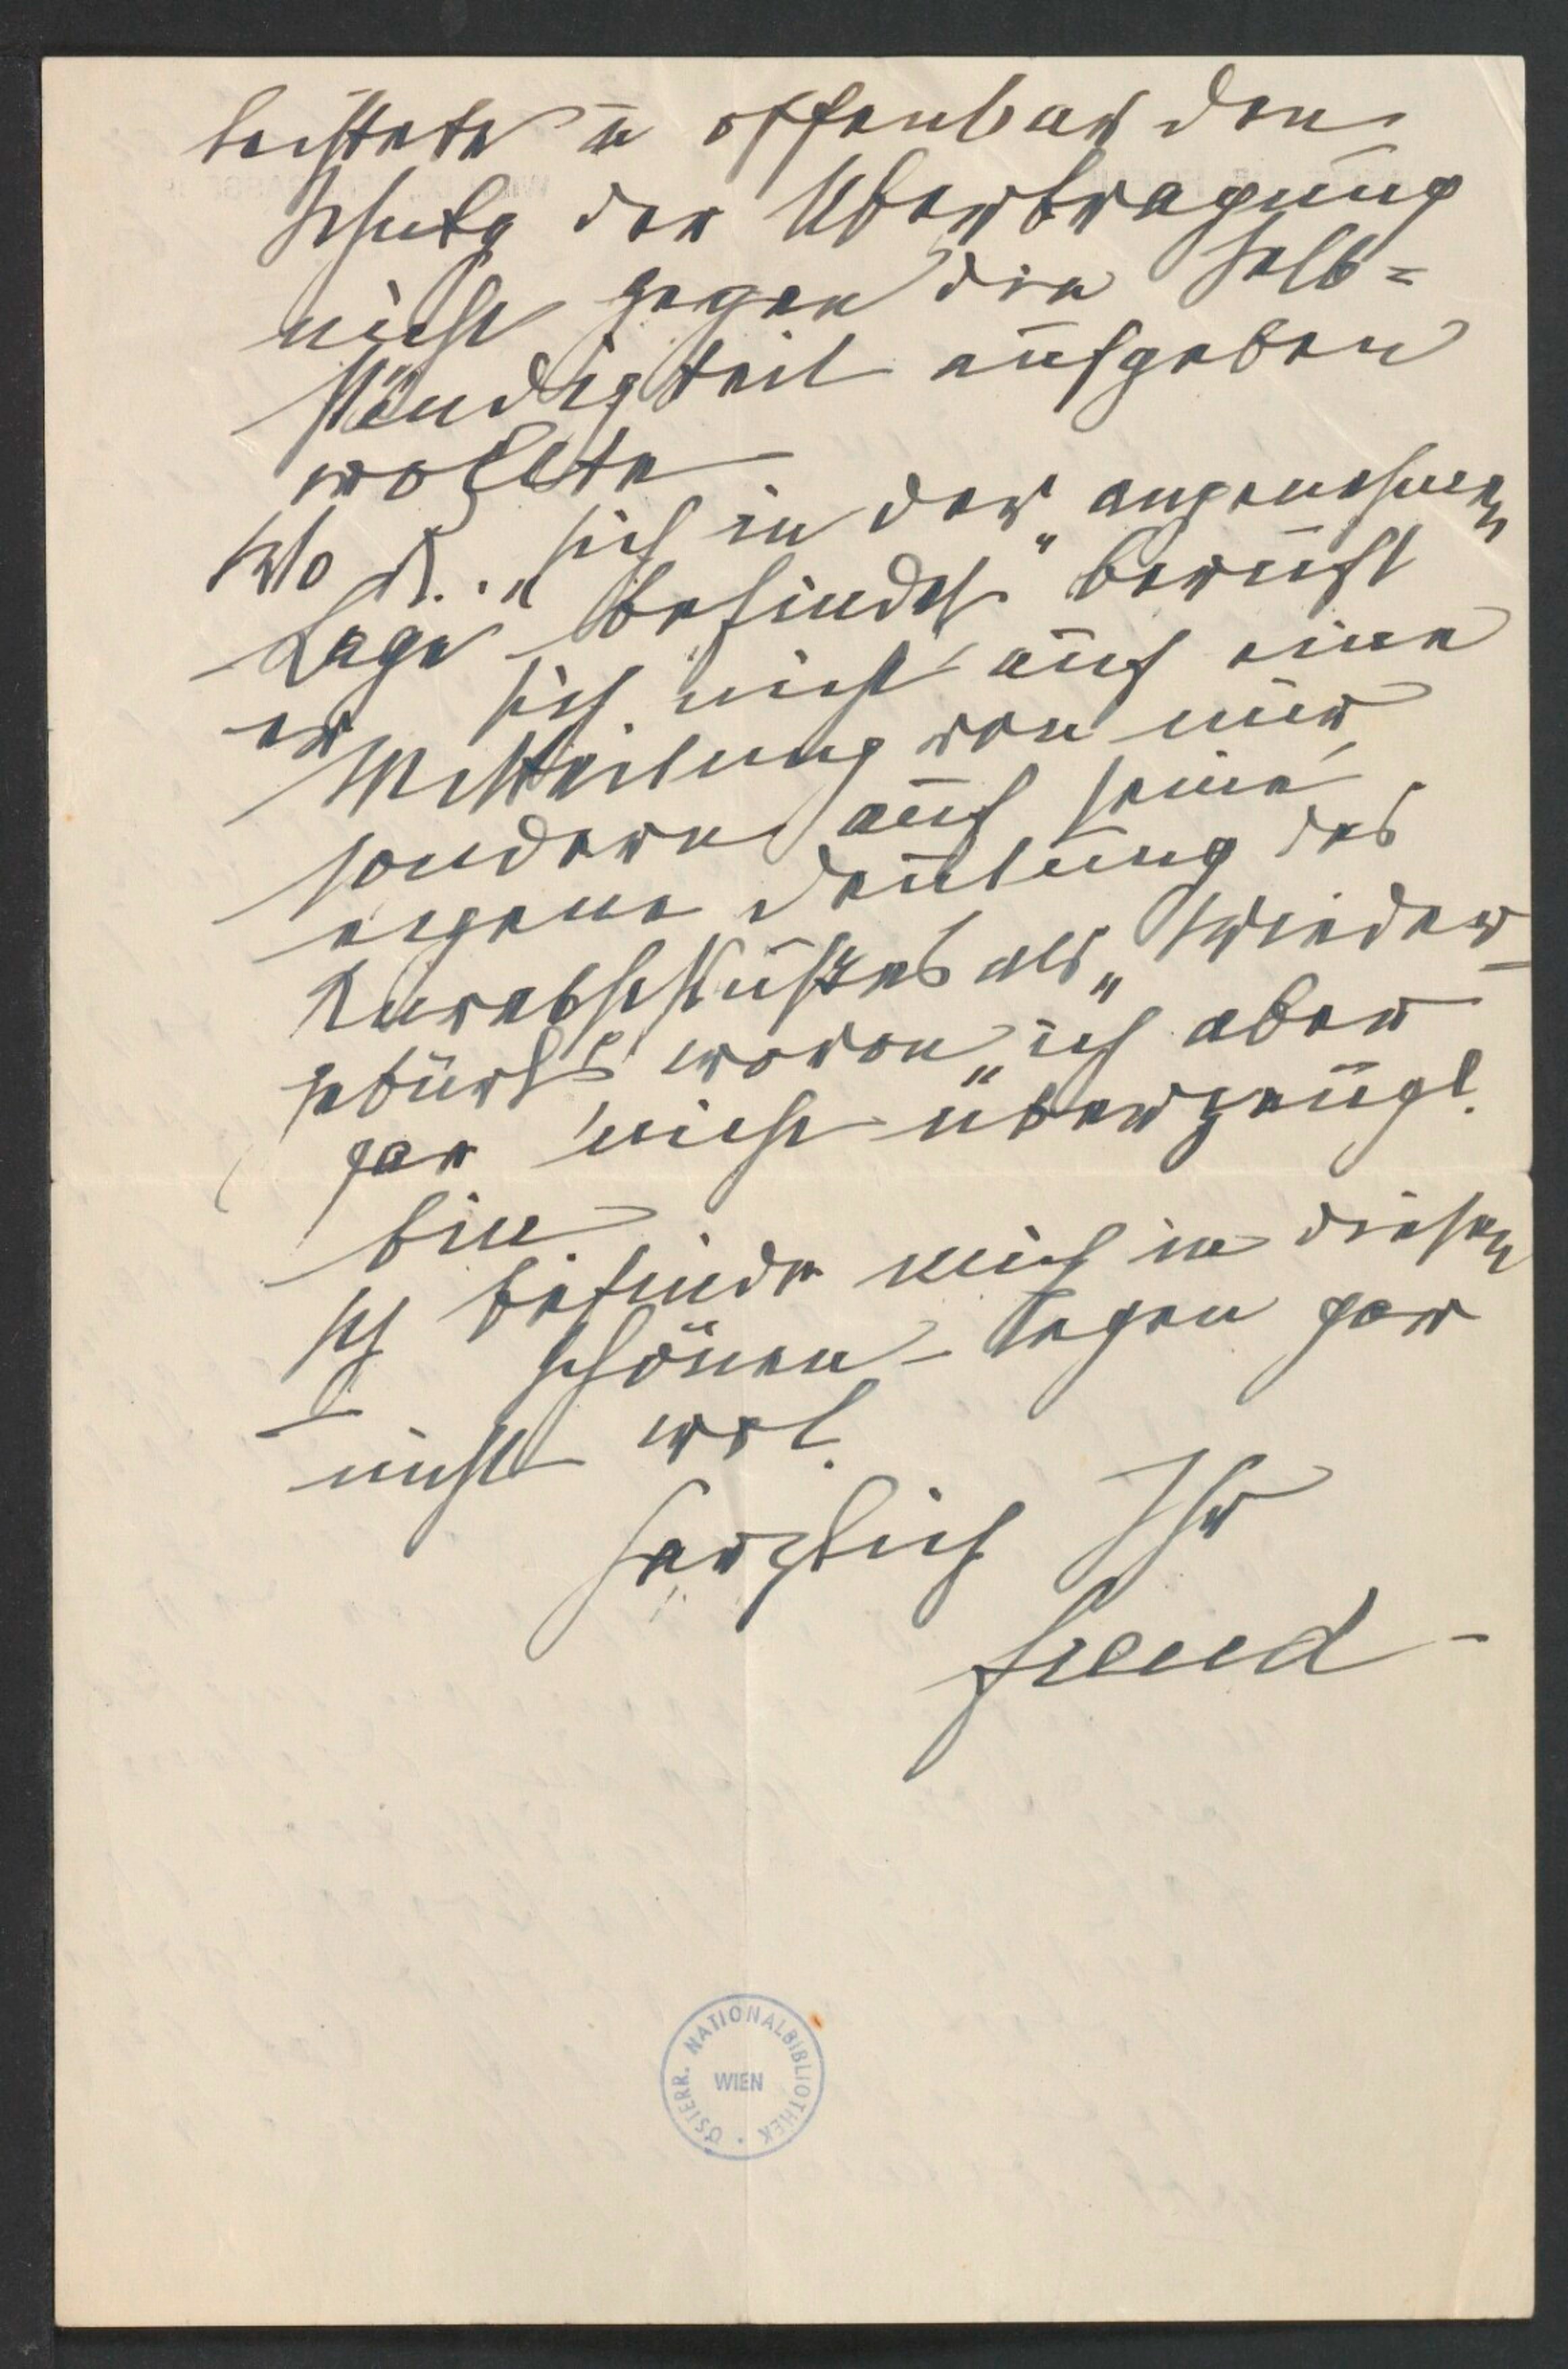 leistete u offenbar den
Schutz der Übertragung
nicht gegen die Selb=
ständigkeit aufgeben
wollte
Wo R. „sich in der „angenehmen
Lage“ befindet“ beruft
er sich nicht auf eine
Mitteilung von mir,
sondern auf seine
eigene Deutung des
Kurabschlußes als „Wieder
geburt“ wovon „ich aber
gar nicht überzeugt
bin.
Ich befinde mich in diesen
schönen Tagen gar
nicht wol.
Herzlich Ihr
Freud
ÖSTERR. NATIONALBIBLIOTHEK · WIEN